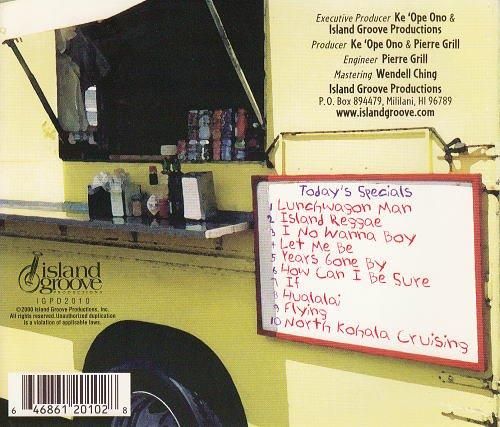 Executive Producer Ke 'Ope Ono &
Island Groove Productions
Producer Ke 'Ope Ono & Pierre Grill
Engineer Pierre Grill
Mastering Wendell Ching
Island Groove Productions
P.O. Box 894479, Mililani, HI 96789
www.islandgroove.com
Today's Specials
1 Lunchwagon Man
2 Island Reggae
3 I No Wanna Boy
4 Let Me Be
5 Years Gone By
6 How Can I Be Sure
7 If
8 Hualalai
9 Flying
10 North Kohala Cruising
island
groove
PRODUCTIONS
IGPD2010
©2000 Island Groove Productions, Inc.
All rights reserved. Unauthorized duplication
is a violation of applicable laws.
6 46861 20102 8